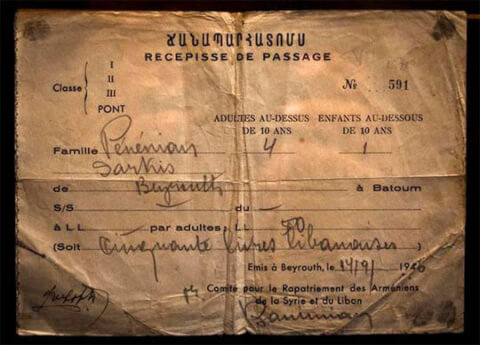 ՃԱՆԱՊԱՐՀԱՏՈՄՍ
RECEPISSE DE PASSAGE
Classe
I
II
III
PONT
№ 591
ADULTES AU-DESSUS DE 10 ANS
ENFANTS AU-DESSOUS DE 10 ANS
Famille Pénénian 4 1
Sarkis
de Beyrouth à Batoum
S/S du
à L.L. par adultes L.L. 50
(Soit Cinquante livres libanaises )
Emis à Beyrouth, le 14/9/ 1946
Comité pour le Rapatriement des Arméniens
de la Syrie et du Liban